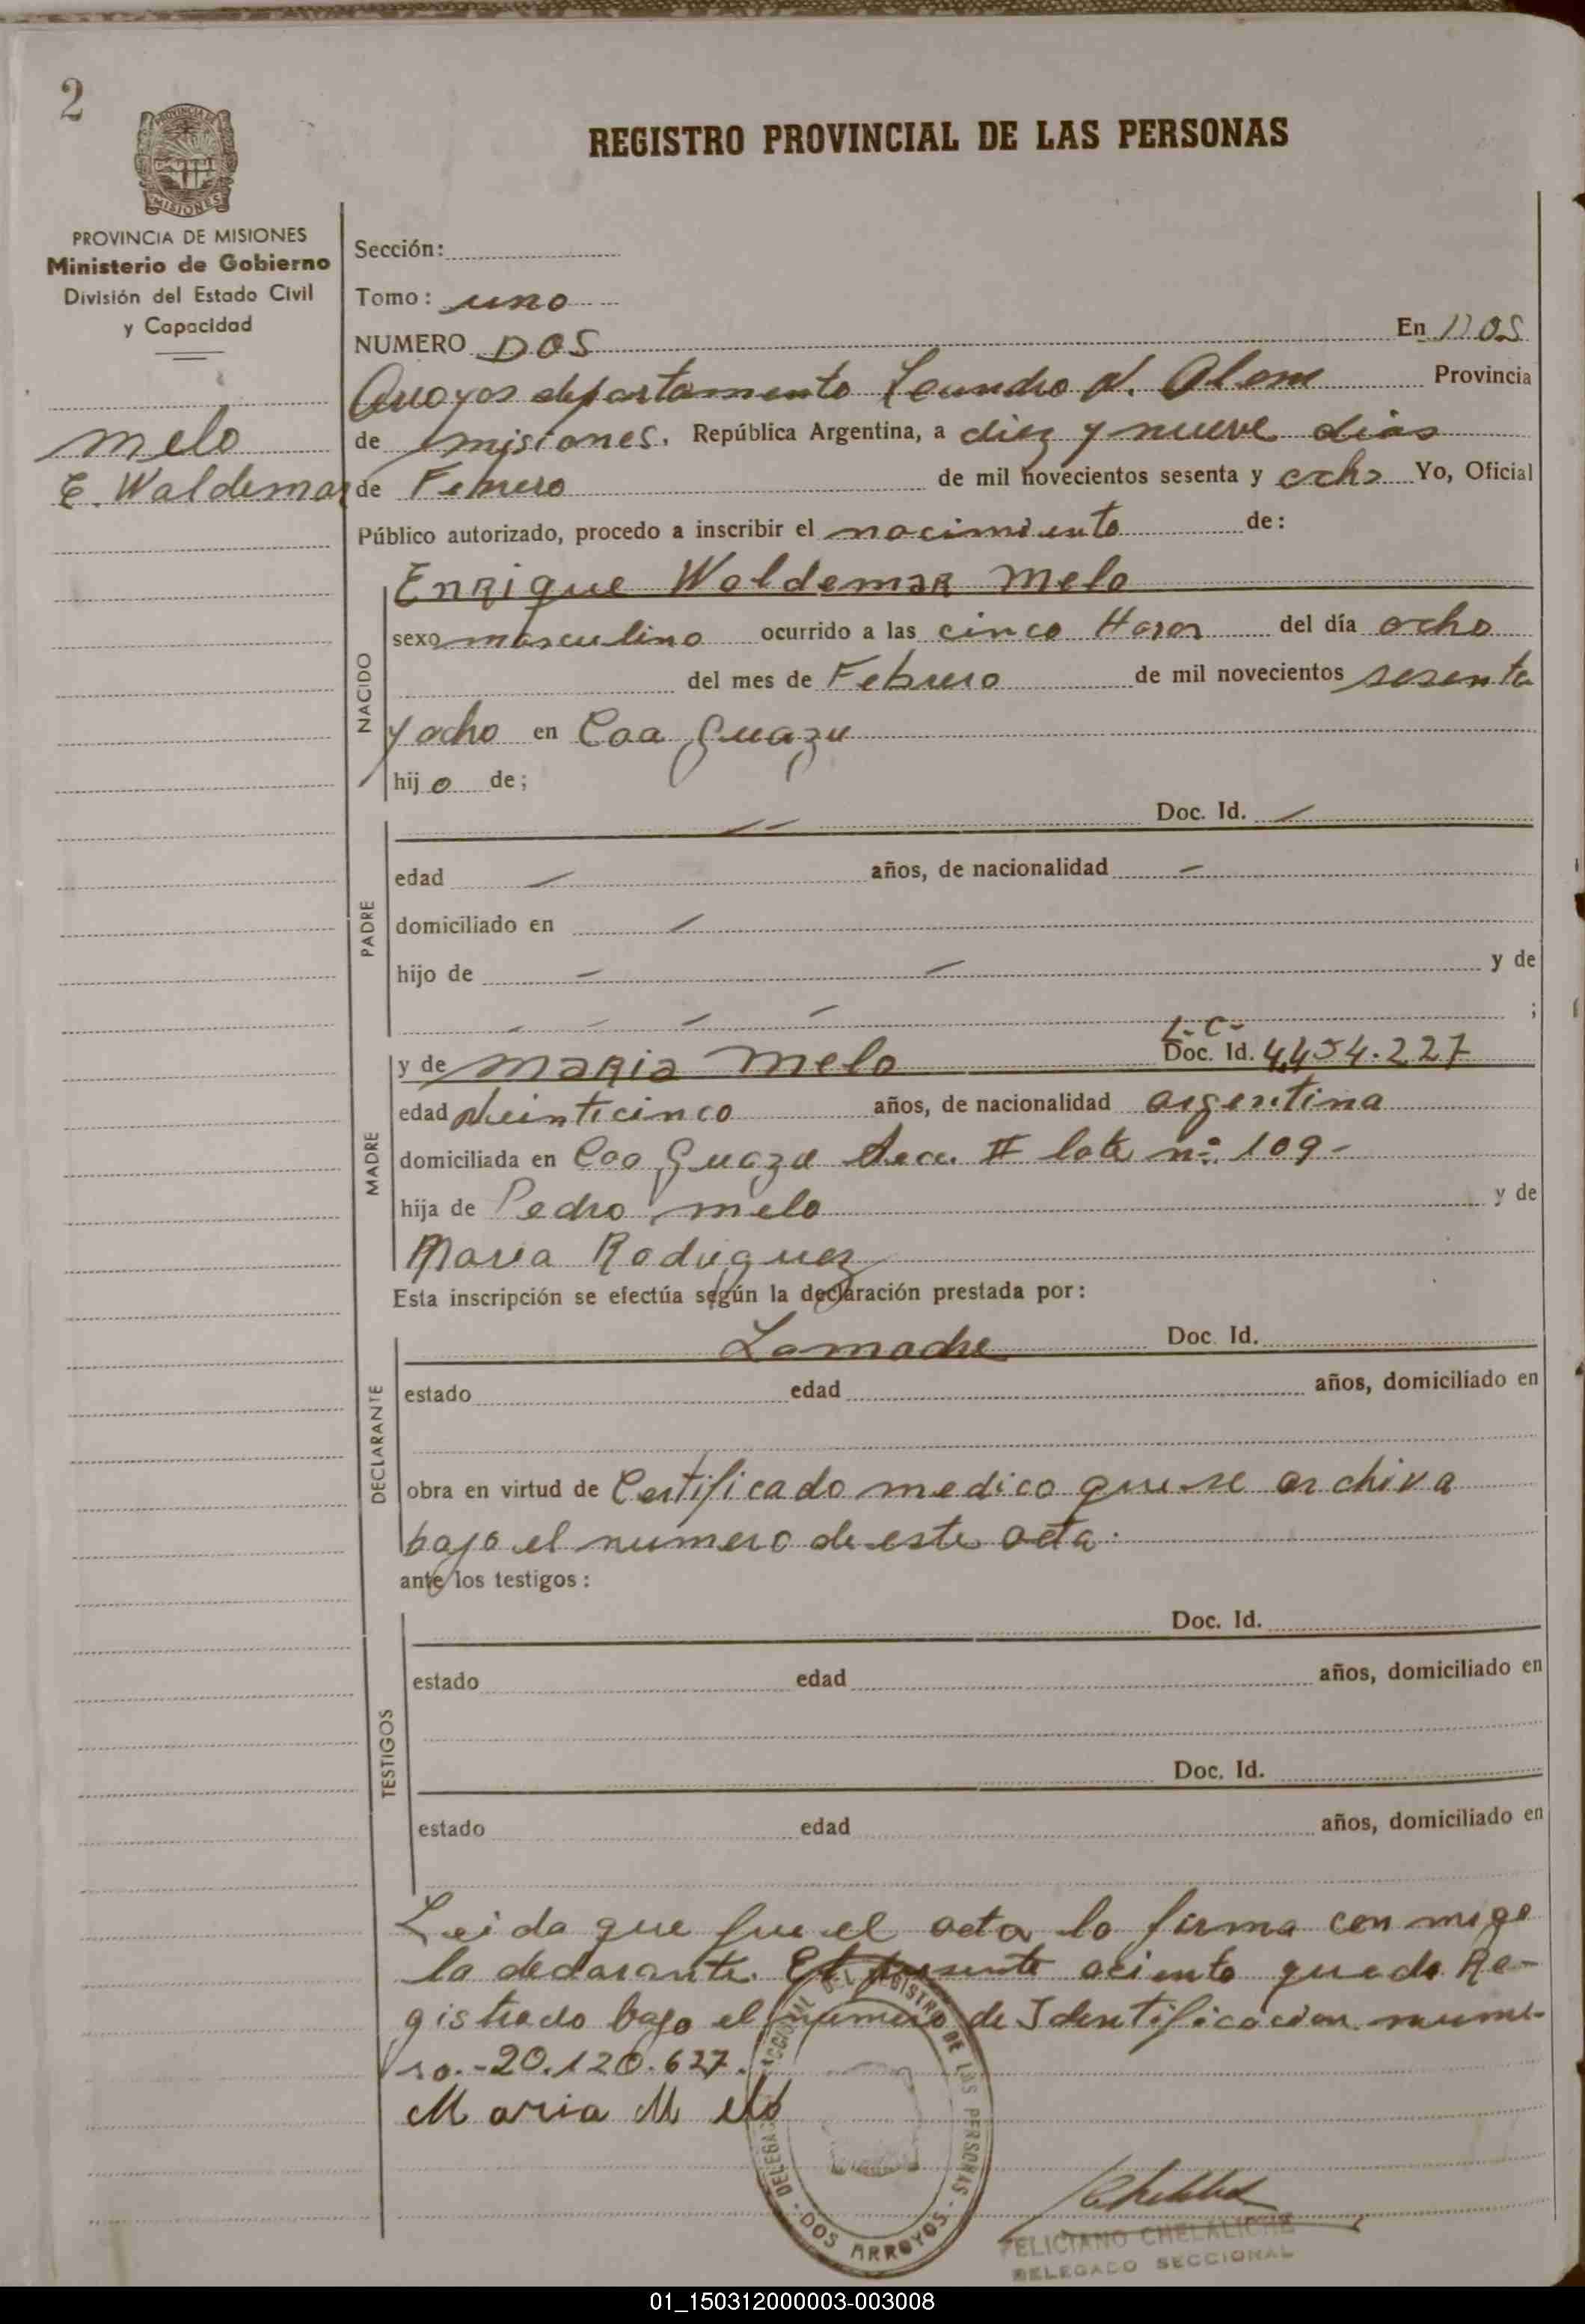 2
PROVINCIA DE MISIONES
MISIONES
PROVINCIA DE MISIONES
Ministerio de Gobierno
División del Estado Civil
y Capacidad
melo
E. Waldemar
REGISTRO PROVINCIAL DE LAS PERSONAS
Sección:
Tomo: uno
NUMERO DOS En DOS
Arroyos departamento Leandro N. Alem Provincia
de misiones. República Argentina, a diez y nueve dias
de Febrero de mil novecientos sesenta y ocho Yo, Oficial
Público autorizado, procedo a inscribir el nacimiento de:
NACIDO
Enrique Waldemar Melo
sexo masculino ocurrido a las cinco Horas del día ocho
del mes de Febrero de mil novecientos sesenta
y ocho en Caa Guazu
hijo de;
PADRE
Doc. Id.
edad años, de nacionalidad
domiciliado en
hijo de y de
;
MADRE
L. C.
y de Maria Melo Doc. Id. 4.454.227
edad Veinticinco años, de nacionalidad argentina
domiciliada en Caa Guazu Secc. II lote nº 109-
hija de Pedro melo y de
Maria Rodriguez
Esta inscripción se efectúa según la declaración prestada por:
DECLARANTE
La madre Doc. Id.
estado edad años, domiciliado en
obra en virtud de Certificado medico que se archiva
bajo el numero de este acta.
ante los testigos:
TESTIGOS
Doc. Id.
estado edad años, domiciliado en
Doc. Id.
estado edad años, domiciliado en
Leida que fue el acta la firma con migo
la declarante. El presente aciento queda Re-
gistrado bajo el numero de Identificacion nume-
ro.-20.120.627.
Maria Melo
DELEGACION SECCIONAL DEL REGISTRO DE LAS PERSONAS - DOS ARROYOS -
FELICIANO CHELALICHE
DELEGADO SECCIONAL
01_150312000003-003008